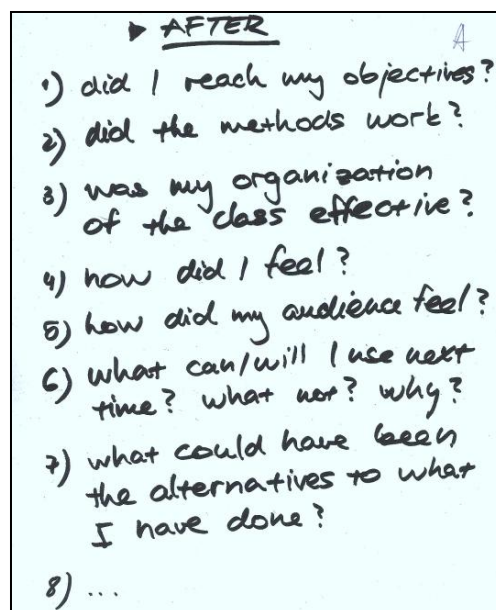 ▶ AFTER
A
1) did I reach my objectives?
2) did the methods work?
3) was my organization
of the class effective?
4) how did I feel?
5) how did my audience feel?
6) what can/will I use next
time? what not? why?
7) what could have been
the alternatives to what
I have done?
8) ...